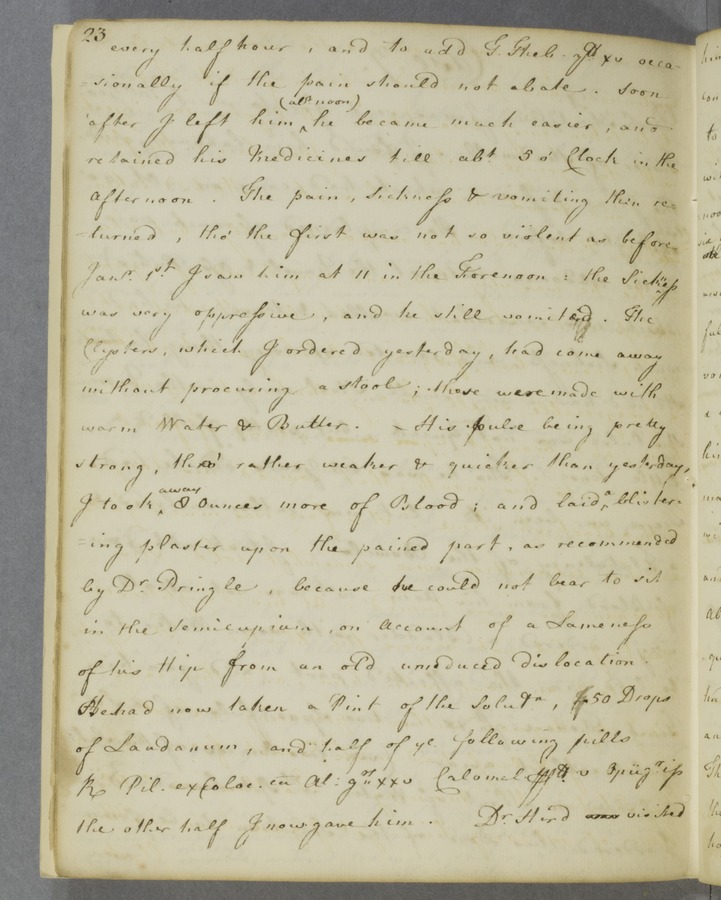 23
every half hour, and to add G. Theb. gtt xv occa-
=sionally if the pain should not abate. Soon
(abt noon)
after I left him, he became much easier, and
retained his Medicines till abt 5 o' Clock in the
afternoon. The pain, sickness & vomiting then re=
=turned, tho' the first was not so violent as before
Jany. 1st I saw him at 11 in the Forenoon: the Sickness
was very oppressive, and he still vomited. The
Clysters, which I ordered yesterday, had come away
without procuring a stool; these were made with
warm Water & Butter. - His pulse being pretty
strong, tho' rather weaker & quicker than yesterday,
away
I took 8 Ounces more of Blood; and laid a blister-
=ing plaster upon the pained part, as recommended
by Dr. Pringle, because he could not bear to sit
in the Semicupium, on Account of a Lameness
of his Hip from an old unreduced dislocation.
He had now taken a Pint of the Solutn, 50 Drops
of Laudanum, and half of ye. following pills
Rx Pil. ex Coloc. cu Al: grs xxv Calomel v
the other half I now gave him. Dr. Hird visited